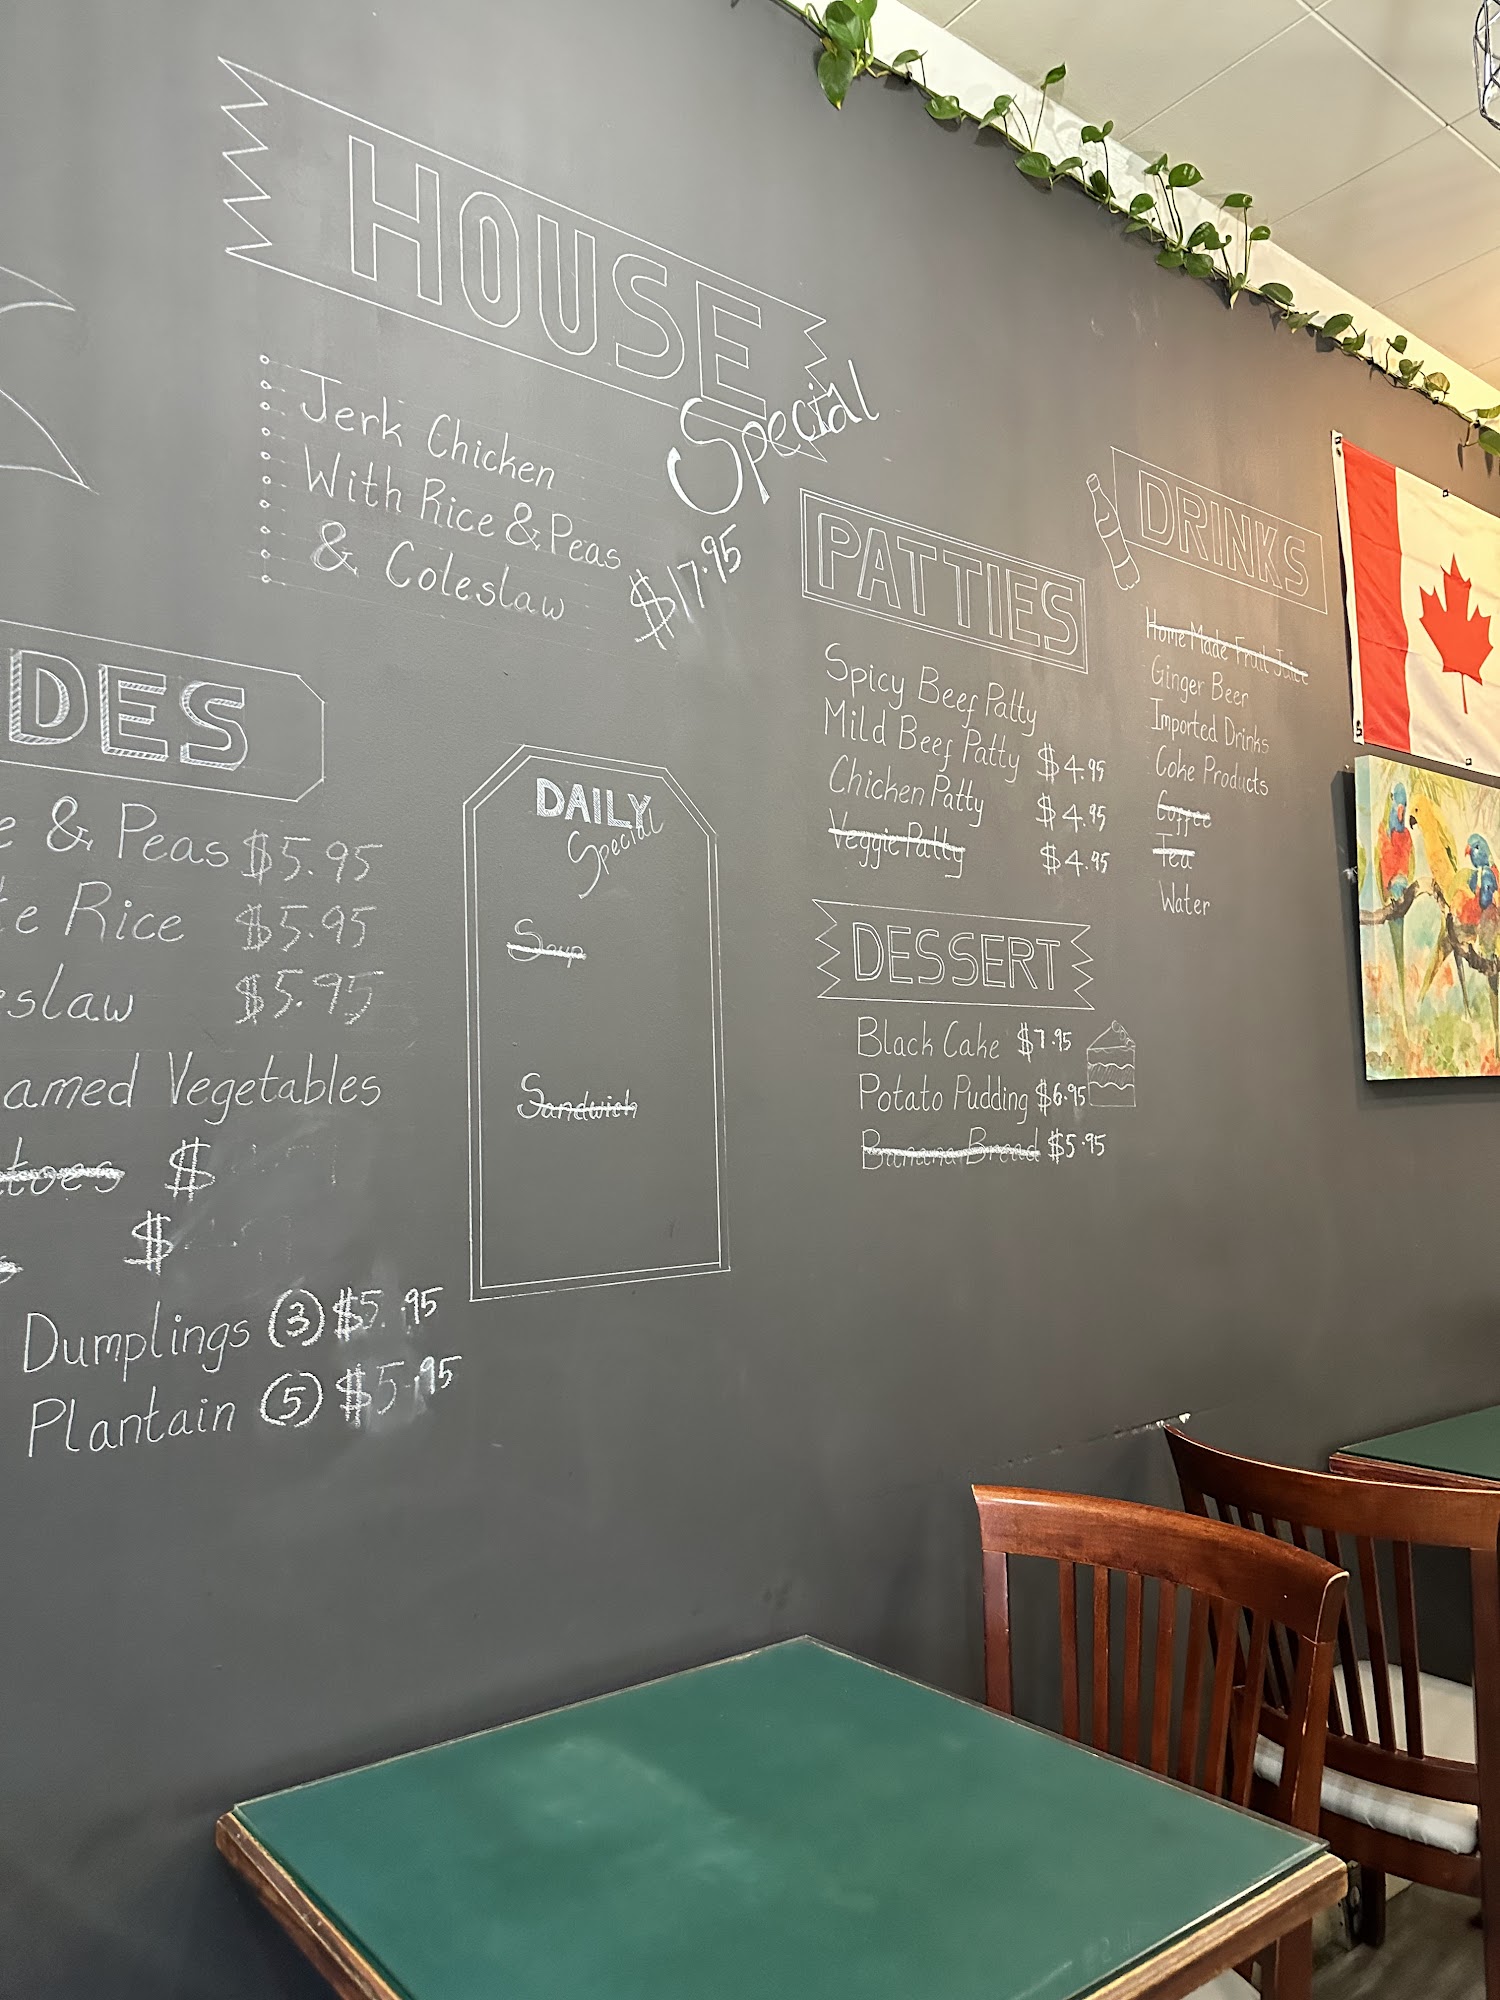 HOUSE
Special
Jerk Chicken
With Rice & Peas
& Coleslaw $17.95
DES
e & Peas $5.95
te Rice $5.95
eslaw $5.95
amed Vegetables
toes $
$
Dumplings 3 $5.95
Plantain 5 $5.95
DAILY
Special
Soup
Sandwich
PATTIES
Spicy Beef Patty
Mild Beef Patty $4.95
Chicken Patty $4.95
Veggie Patty $4.95
DESSERT
Black Cake $7.95
Potato Pudding $6.95
Banana Bread $5.95
DRINKS
Home Made Fruit Juice
Ginger Beer
Imported Drinks
Coke Products
Coffee
Tea
Water